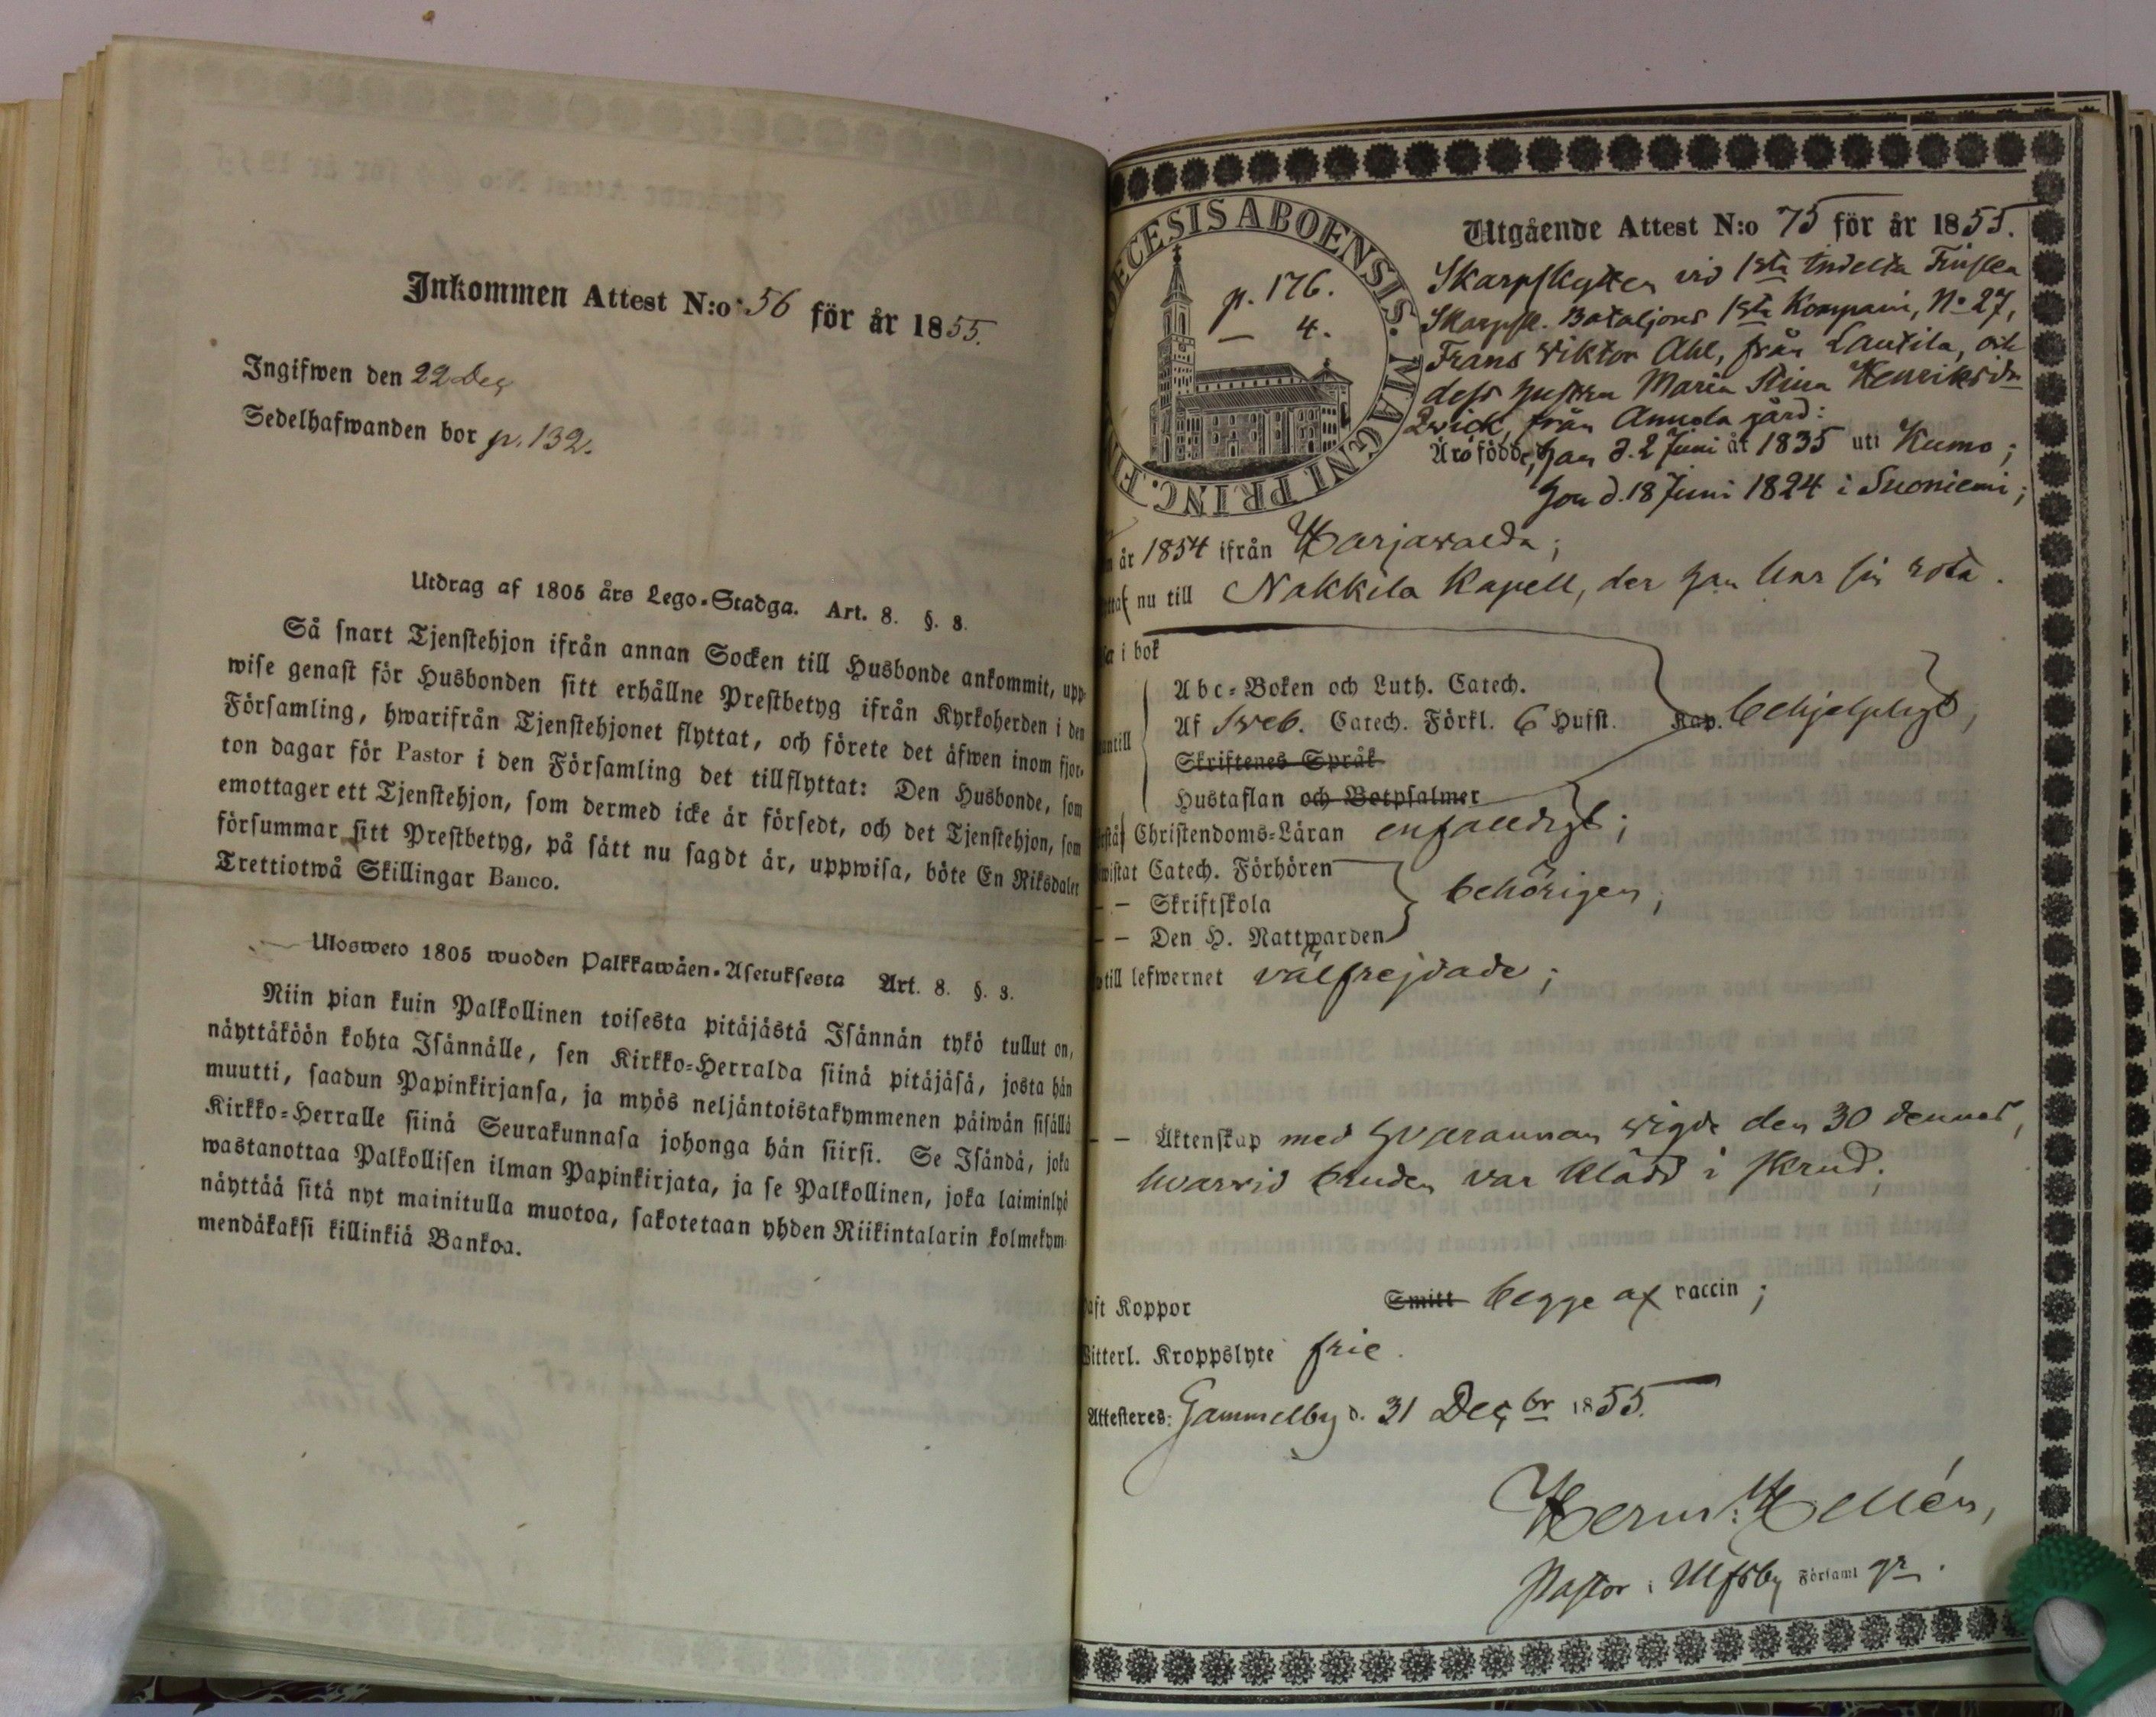 Inkommen Attest N:o 56 för år 1855.
Ingifwen den 22 Dec
Sedelhafwanden bor p. 132.
Utdrag af 1805 års Lego-Stadga. Art. 8. §. 8.
Så snart Tjenstehjon ifrån annan Socken till Husbonde ankommit, upp-
wise genast för Husbonden sitt erhållne Prestbetyg ifrån Kyrkoherden i den
Församling, hwarifrån Tjenstehjonet flyttat, och förete det äfwen inom fjor-
ton dagar för Pastor i den Församling det tillflyttat: Den Husbonde, som
emottager ett Tjenstehjon, som dermed icke är försedt, och det Tjenstehjon, som
försummar sitt Prestbetyg, på sätt nu sagdt är, uppwisa, böte En Riksdaler
Trettiotwå Skillingar Banco.
Ulosweto 1805 wuoden Palkkawäen-Asetuksesta Art. 8. §. 8.
Niin pian kuin Palkollinen toisesta pitäjästä Isännän tykö tullut on,
näyttäköön kohta Isännälle, sen Kirkko-Herralda siinä pitäjäsä, josta hän
muutti, saadun Papinkirjansa, ja myös neljäntoistakymmenen päiwän sisällä
Kirkko-Herralle siinä Seurakunnasa johonga hän siirsi. Se Isändä, joka
wastanottaa Palkollisen ilman Papinkirjata, ja se Palkollinen, joka laiminlyö
näyttää sitä nyt mainitulla muotoa, sakotetaan yhden Riikintalarin kolmekym-
mendäkaksi killinkiä Bankoa.
DECESIS ABOENSIS. MAGNI PRINC. F
p. 176.
— 4.
Utgående Attest N:o 75 för år 1855.
Skarpskytten vid 1sta Indelta Finska
Skarpsk. Bataljons 1sta Kompani, No 27,
Frans Wiktor Ahl, från Lautila, och
dess hustru Maria Stina Henriksdr
Qvick, från Annola gård:
Äro födde, han d. 2 Juni år 1835 uti Kumo;
hon d. 18 Juni 1824 i Suoniemi;
år 1854 ifrån Harjawalda;
nu till Nakkila Kapell, der han har sin rota.
i bok
Abc-Boken och Luth. Catech.
Af Sveb. Catech. Förkl. 6 Hufst. Kap. behjelpligt,
Skriftenes Språk
Hustaflan och Botpsalmer
Christendoms-Läran enfaldigt;
Catech. Förhören
— Skriftskola behörigen,
— Den H. Nattwarden
till lefwernet välfrejdade;
— Äktenskap med hvarannan wigde den 30 dennes,
hvarvid bruden var klädd i skrud;
Koppor Smitt begge af vaccin;
Witterl. Kroppslyte frie.
Attesteres: Gammelby d. 31 Decbr 1855.
Herm: Hellén,
Pastor i Ulfsby Församl gr.